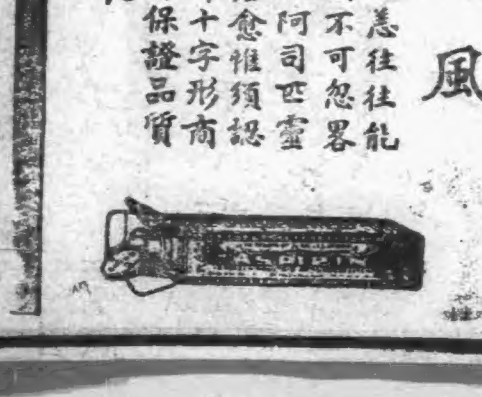 風
恙往往能
不可忽畧
阿司匹靈
愈惟須認
十字形商
保證品質
ASPIRIN